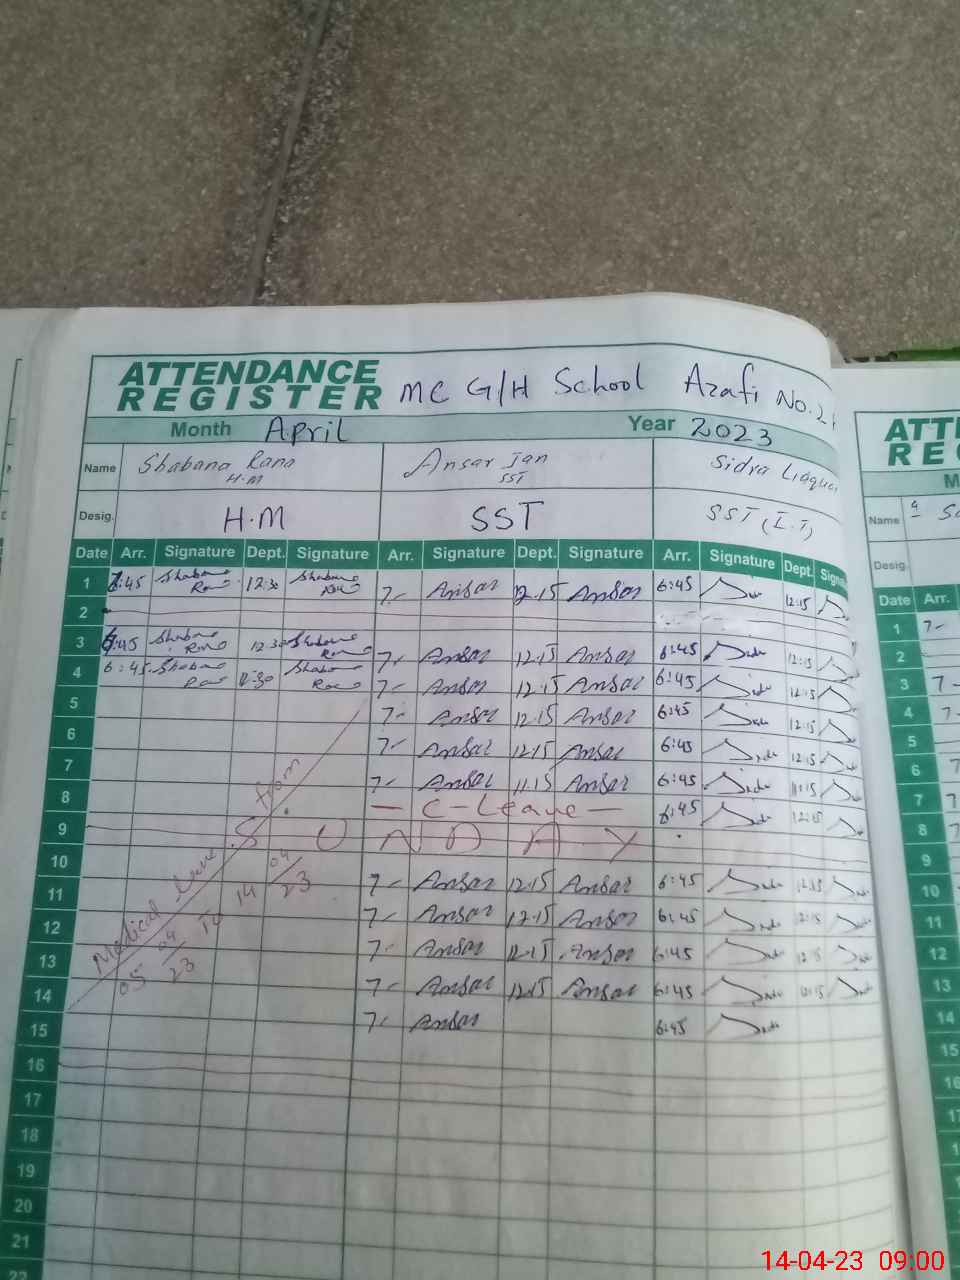 ATTENDANCE
REGISTER MC G/H School Azafi No. 2
Month April Year 2023
Name Shabana Rana Ansar Jan Sidra Liaqua
H.M SST
Desig. H.M SST SST (I.T)
Date Arr. Signature Dept. Signature Arr. Signature Dept. Signature Arr. Signature Dept. Sign
1 6:45 Shabana Rana 12:30 Shabana Rana 7- Ansar 12.15 Ansar 6:45 12:15
2
3 6:45 Shabana Rana 12:30 Shabana Rana 7- Ansar 12.15 Ansar 6:45 Sidra 12:15
4 6:45 Shabana Rana 12:30 Shabana Rana 7- Ansar 12.15 Ansar 6:45 Sidra 12:15
5 7- Ansar 12.15 Ansar 6:45 Sidra 12:15
6 7- Ansar 12.15 Ansar 6:45 Sidra 12:15
7 7- Ansar 11.15 Ansar 6:45 Sidra 11:15
8 - C-Leave - 6:45 Sidra 12:15
9 S U N D A Y
10 7- Ansar 12.15 Ansar 6:45 Sidra 12:15
11 7- Ansar 12.15 Ansar 6:45 Sidra 12:15
12 7- Ansar 12.15 Ansar 6:45 Sidra 12:15
13 7- Ansar 12.15 Ansar 6:45 Sidra 12:15
14 7- Ansar 6:45 Sidra
15
16
17
18
19
20
21
22
Medical Leave from
05 04/23 To 14 04/23
ATT
RE
M
Name
Desig.
Date Arr.
1 7-
2
3 7-
4 7-
5
6 7
7 7
8 7
9
10
11
12
13
14
15
16
17
14-04-23 09:00